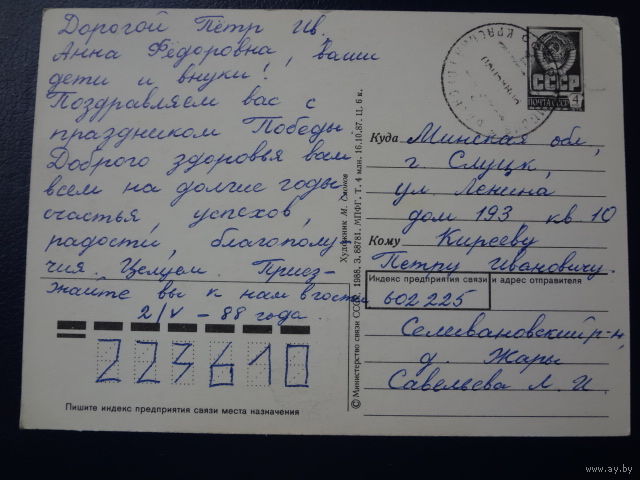 Дорогой Пётр Ив.
Анна Фёдоровна, Ваши
дети и внуки!
Поздравляем вас с
праздником Победы.
Доброго здоровья вам
всем на долгие годы,
счастья, успехов,
радости, благополу-
чия. Целуем. Приез-
жайте вы к нам в гости
2/V – 88 года.
223610
Пишите индекс предприятия связи места назначения
© Министерство связи СССР. 1988. З. 88781. МПФГ. Т. 4 млн. 16.10.87. Ц. 6 к.
Художник М.
СССР
ПОЧТА СССР
4
Куда Минская обл,
г Слуцк,
ул Ленина
дом 193 кв 10
Кому Кирееву
Петру Ивановичу.
Индекс предприятия связи и адрес отправителя
602225
Селивановский р-н,
д. Жары
Савельева Л. И.
www.ay.by